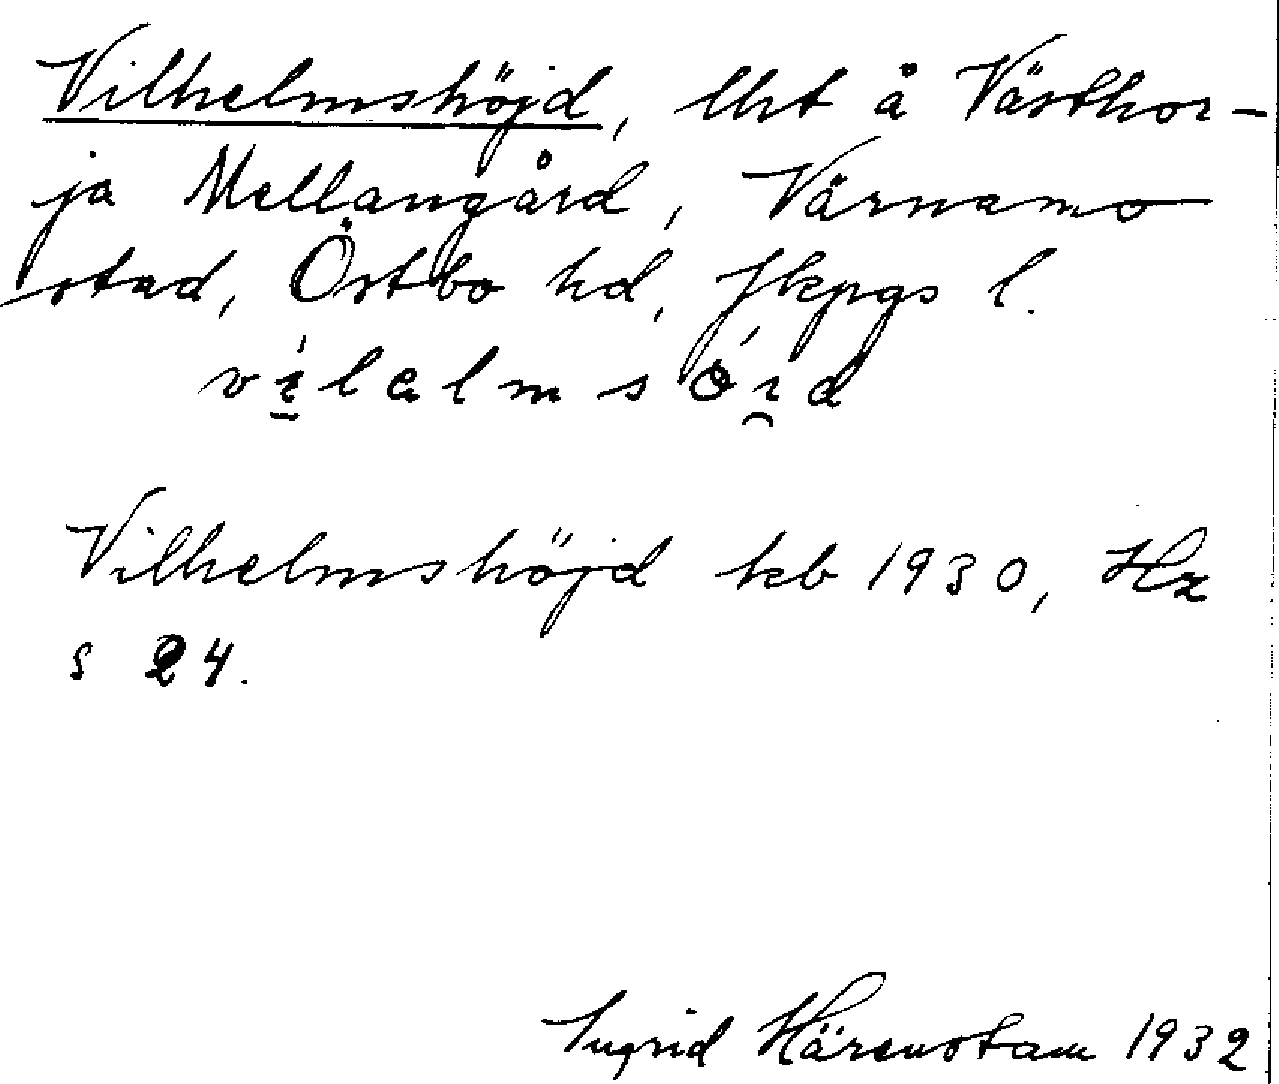 Vilhelmshöjd, lht å Västhor-
ja Mellangård, Värnamo
stad, Östbo hd, Jkpgs l.
vilelmsöid
Vilhelmshöjd kb 1930, Hz
s 24.
Ingrid Härenstam 1932